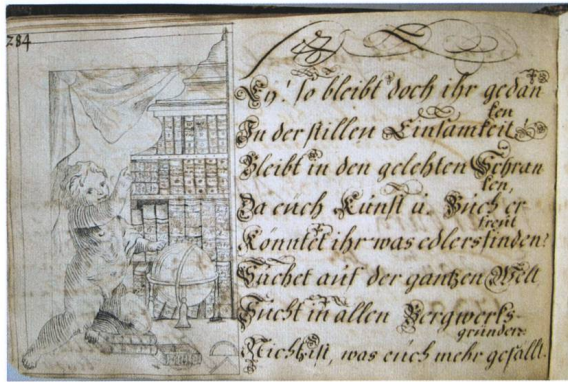 284
Ey! so bleibt doch ihr gedan
ken
In der stillen Einsamkeit
Bleibt in den gelehten Schran
ken,
Da euch Kunst u. Buch er
freut
Könntet ihr was edlers finden?
Suchet auf der gantzen Welt
Sucht in allen Bergwerks-
gründen:
Nichts ist, was euch mehr gefällt.